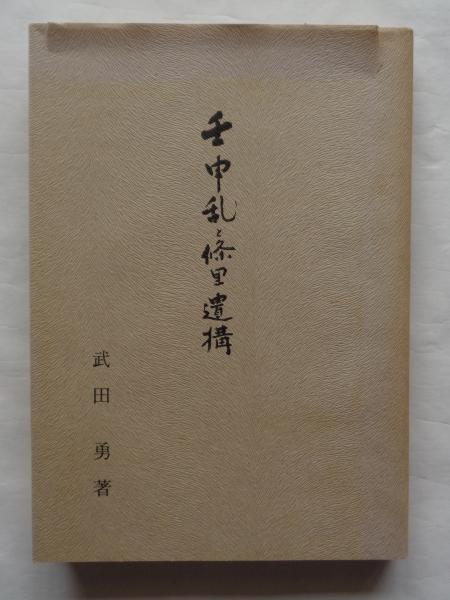 壬申乱と條里遺構
武田勇著